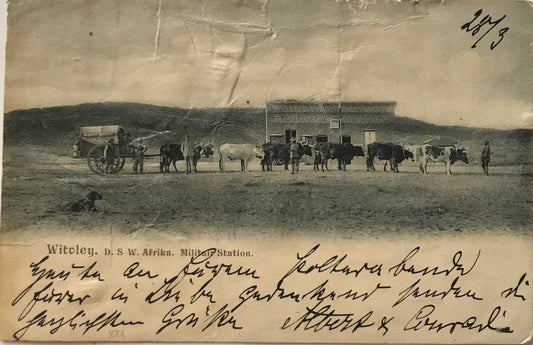 28/3
Witvley. D. S W. Afrika. Militair Station.
Heute an Eurem Polterabende
Eurer in Liebe gedenkend senden die
herzlichsten Grüße Albert & Conrad.